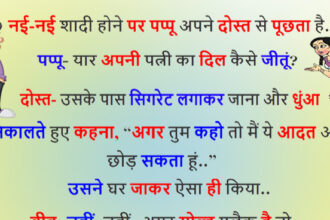 नई-नई शादी होने पर पप्पू अपने दोस्त से पूछता है..
पप्पू- यार अपनी पत्नी का दिल कैसे जीतूं?
दोस्त- उसके पास सिगरेट लगाकर जाना और धुंआ
नकालते हुए कहना, “अगर तुम कहो तो मैं ये आदत अ
छोड़ सकता हूं..”
उसने घर जाकर ऐसा ही किया..